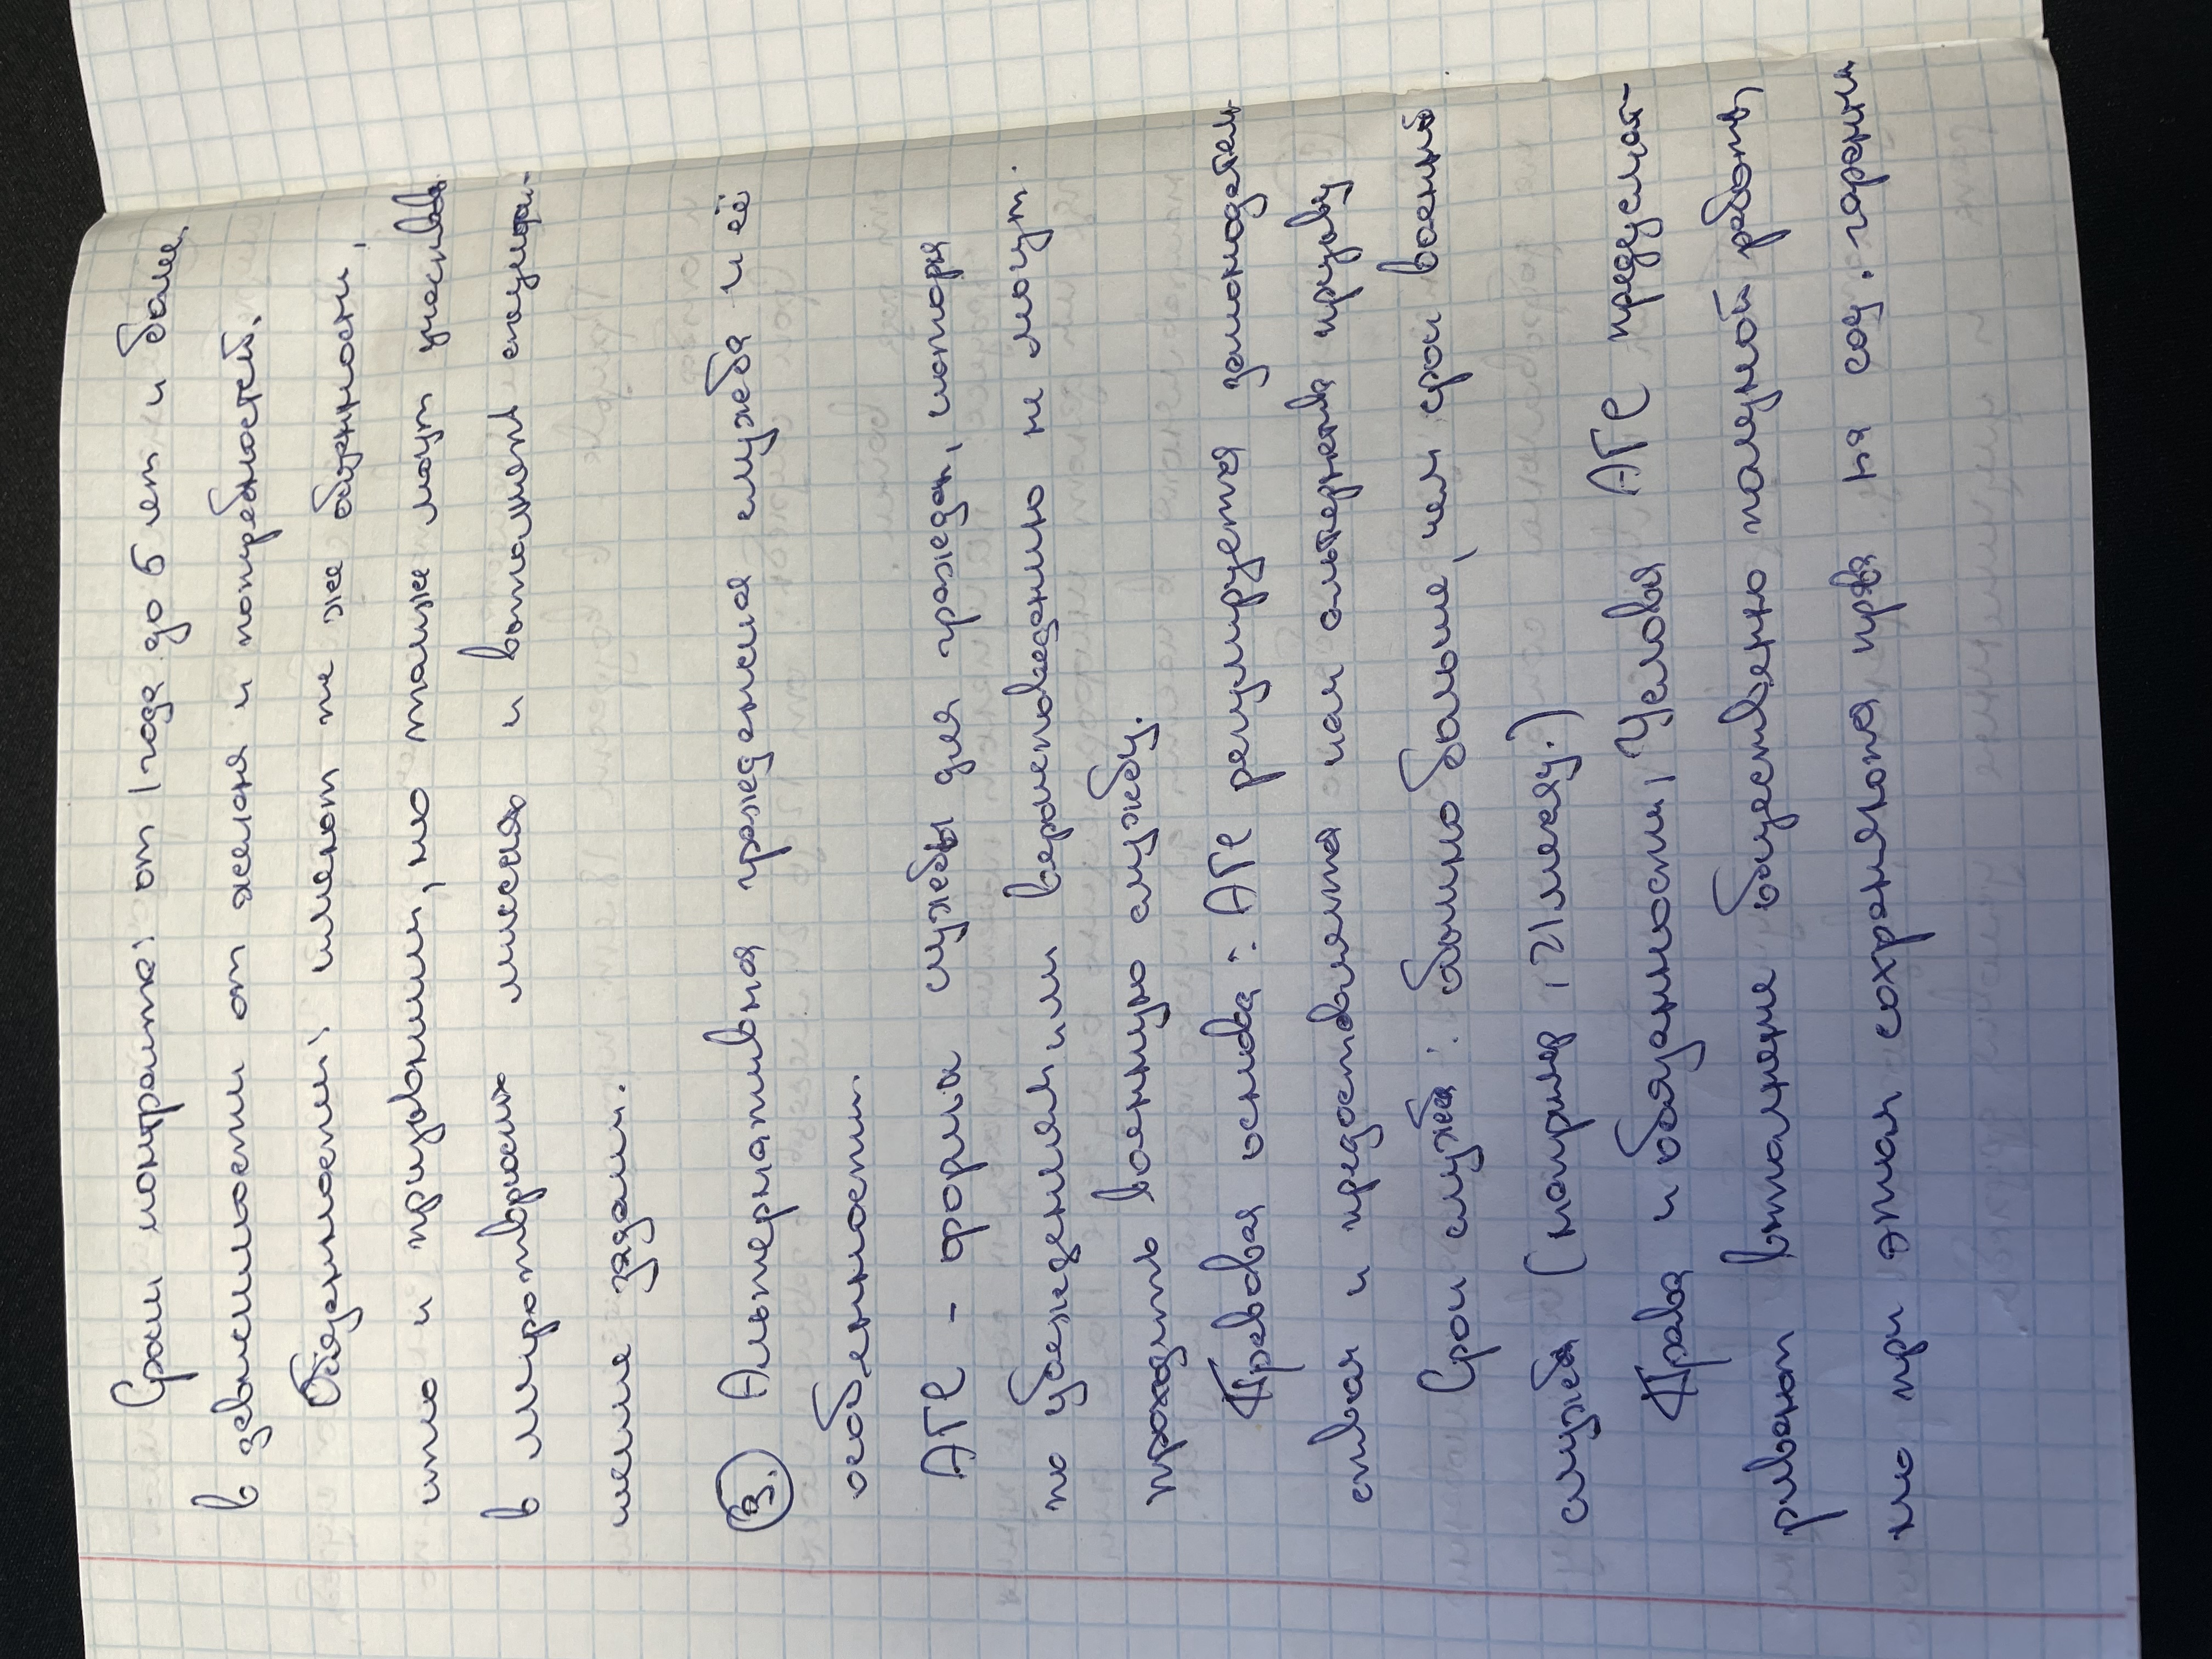 Срок контракта: от 1 года до 5 лет и более,
в зависимости от желания и потребностей.
Обязенности: имеют те же обязенности,
что и призывники, но также могут участвовать
в миротворческих миссиях и выполнять специаль-
ные задачи.
3. Альтернативная гражденская служба и её
особенности.
АГС - форма службы для граждан, которые
по убеждениям или вероисповеданию не могут
проходить военную службу.
Правовая основа: АГС регулируется законодатель-
ством и предоставляется как альтернатива призыву.
Срок службы: обычно больше, чем срок военной
службы (например, 21 месяц.)
Права и обязанности: Условия АГС предусмат-
ривают выполнение общественно полезной работы,
но при этом сохраняются права на соц. гарантии